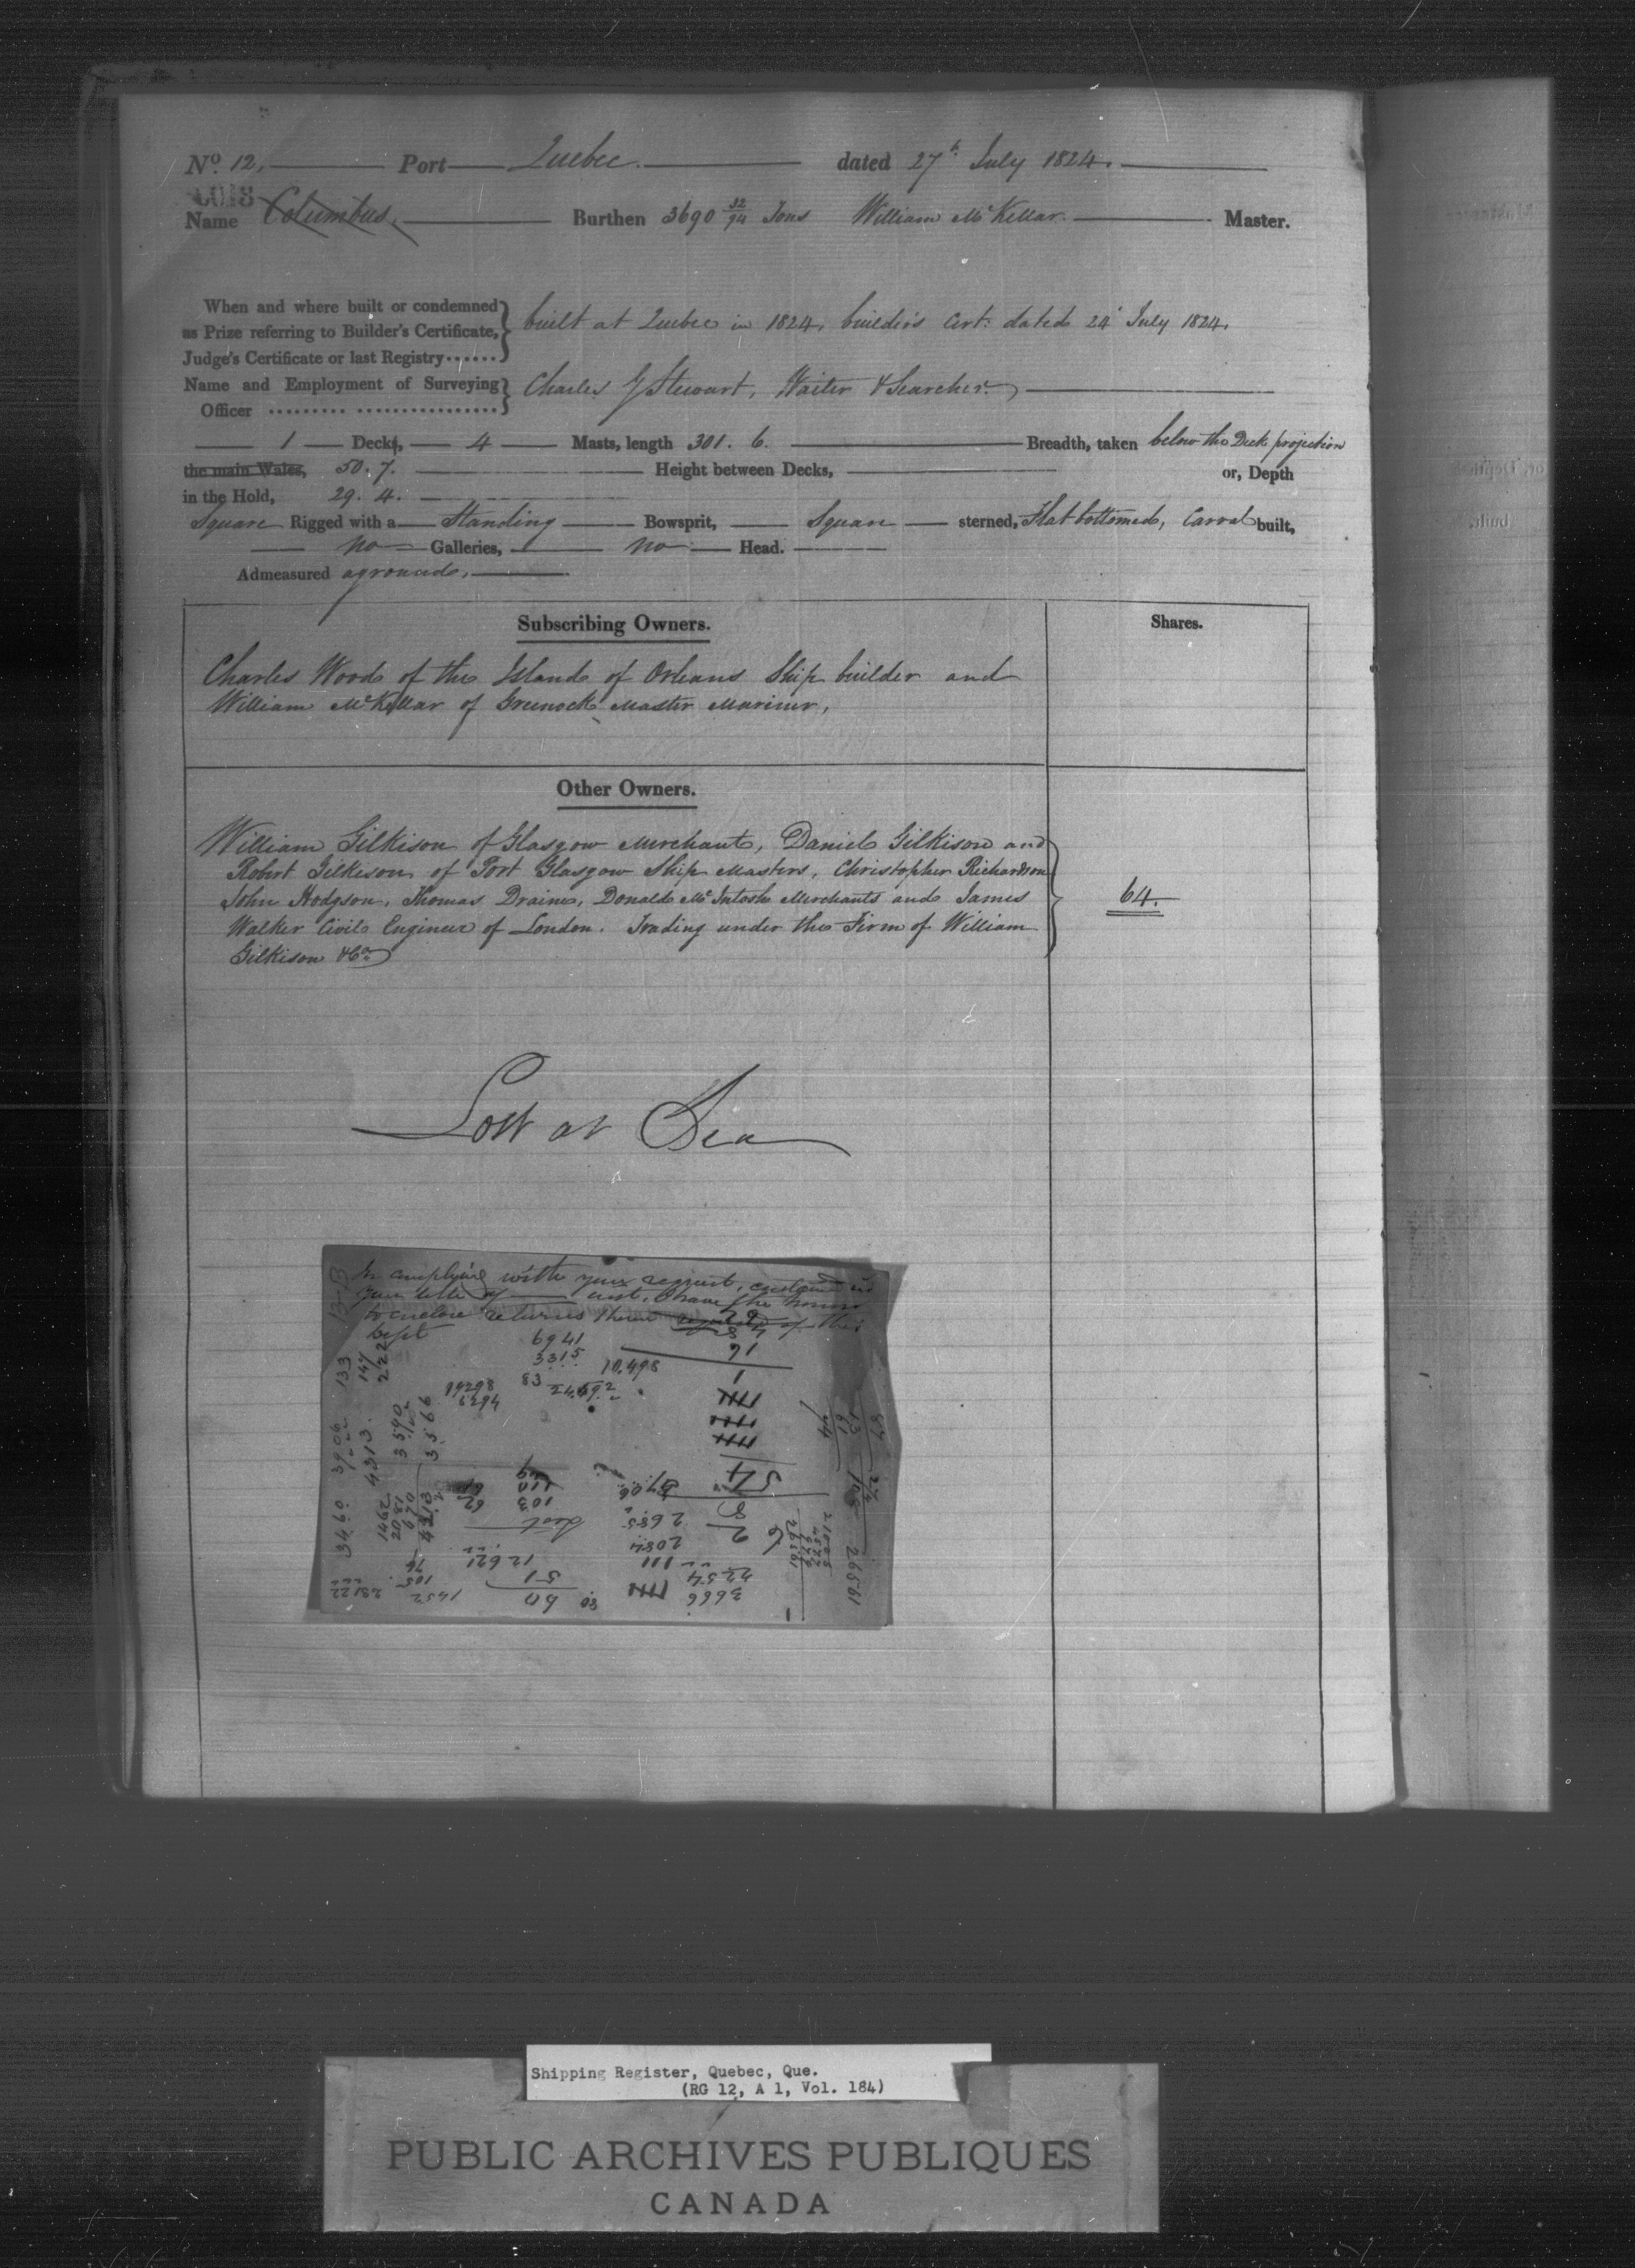 No. 12. Port Quebec. dated 27th July 1824.
Name Columbus. Burthen 3690 32/94 Tons William McKellar. Master.
When and where built or condemned as Prize referring to Builder's Certificate, Judge's Certificate or last Registry...... built at Quebec in 1824, builder's Cert: dated 24 July 1824.
Name and Employment of Surveying Officer ......... ................ Charles G Stewart, Waiter & Searcher.
1 Decks, 4 Masts, length 301. 6. Breadth, taken below the Deck projection
the main Wales, 50. 7. Height between Decks, or, Depth
in the Hold, 29. 4.
Square Rigged with a Standing Bowsprit, Square sterned, Flat bottomed, Carvel built,
no Galleries, no Head.
Admeasured aground.
Subscribing Owners. Shares.
Charles Wood of the Island of Orleans Ship builder and
William McKellar of Greenock Master Mariner,
Other Owners.
William Gilkison of Glasgow Merchant, Daniel Gilkison and
Robert Gilkison of Port Glasgow Ship Masters, Christopher Richardson
John Hodgson, Thomas Draine, Donald McIntosh Merchants and James
Walker Civil Engineer of London. Trading under the Firm of William
Gilkison & Co.
64.
Lost at Sea
In complying with your request, contained in
your letter of inst. I have the honor
to enclose returns
6941
3315
10.498
83
19298
6294
91
133
147
222
3906
4313
3590
3566
3460
1462
2081
670
4213
54
8
2
103
62
2685
2084
12621
51
60
3666
2254
1452
105
76
26561
Shipping Register, Quebec, Que.
(RG 12, A 1, Vol. 184)
PUBLIC ARCHIVES PUBLIQUES
CANADA